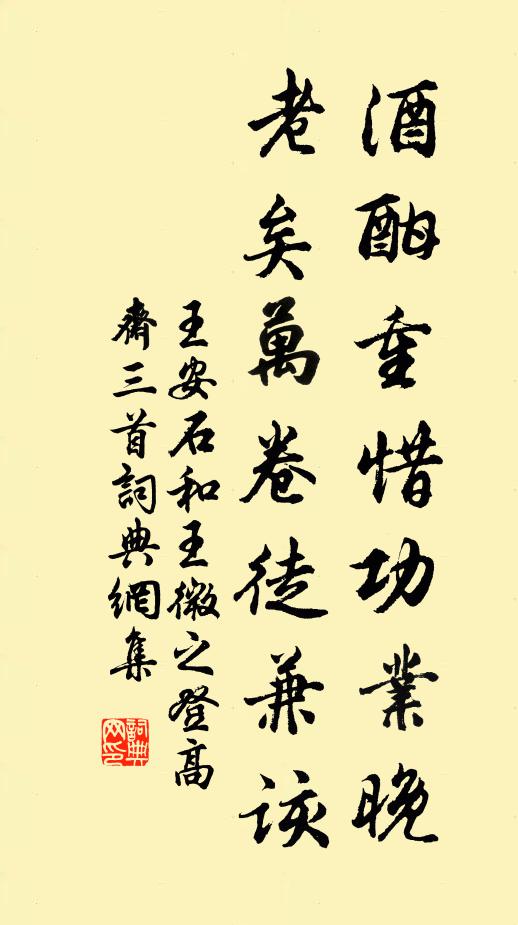 酒酣重惜功業晚
老矣萬卷徒兼該
王安石和王微之登高
齋三首詞典網集
詞典網印